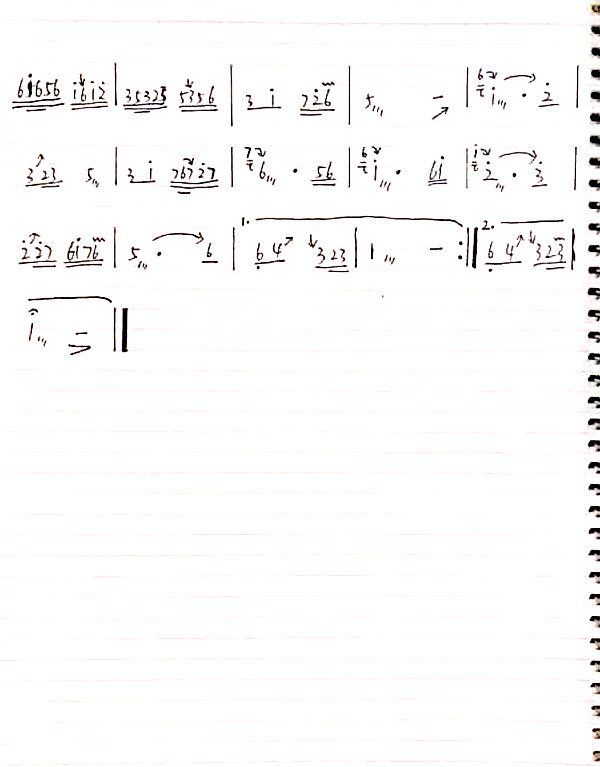 6i̇656 i̇6i̇2̇ | 35323 5356 | 3 i̇ 72̇6 | 5,,, – | 6 i̇,,, · 2̇ |
3 23 5,,, | 3 i̇ 7672̇7 | 7 6,,, · 56 | 6 i̇,,, · 6i̇ | i̇ 2̇,,, · 3̇ |
2̇2̇7 6i̇76 | 5,,, · 6 | 1. 6̣ 4 323 | 1,,, – :|| 2. 6̣ 4 323 |
i̇,,, – ||